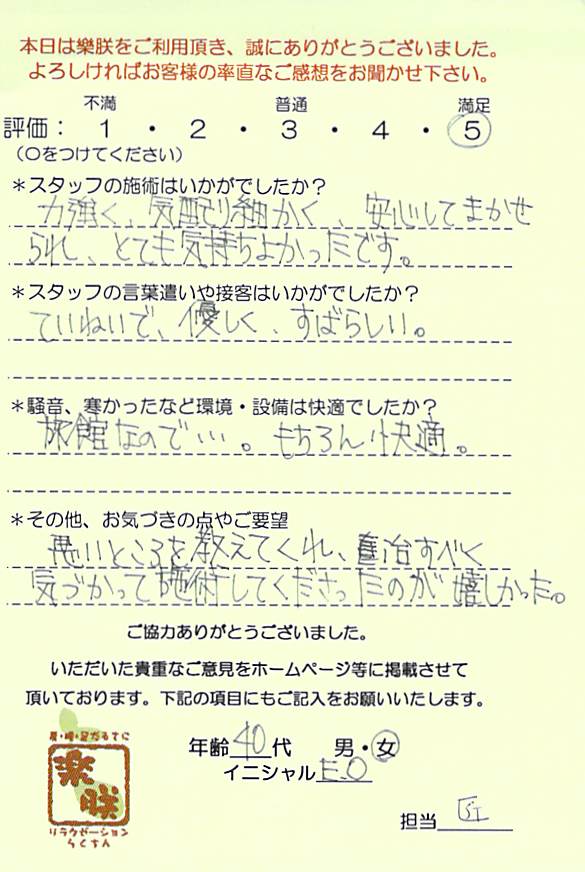 本日は樂朕をご利用頂き、誠にありがとうございました。
よろしければお客様の率直なご感想をお聞かせ下さい。
不満 普通 満足
評価： 1 ・ 2 ・ 3 ・ 4 ・ 5
（〇をつけてください）
＊スタッフの施術はいかがでしたか？
力強く、気配り細かく、安心してまかせ
られ、とても気持ちよかったです。
＊スタッフの言葉遣いや接客はいかがでしたか？
ていねいで、優しく、すばらしい。
＊騒音、寒かったなど環境・設備は快適でしたか？
旅館なので…。もちろん快適。
＊その他、お気づきの点やご要望
悪いところを教えてくれ、直治すべく
気づかって施術してくださったのが嬉しかった。
ご協力ありがとうございました。
いただいた貴重なご意見をホームページ等に掲載させて
頂いております。下記の項目にもご記入をお願いいたします。
年齢 40 代 男・女
イニシャル E.O
樂朕
リラクゼーション
らくちん
担当